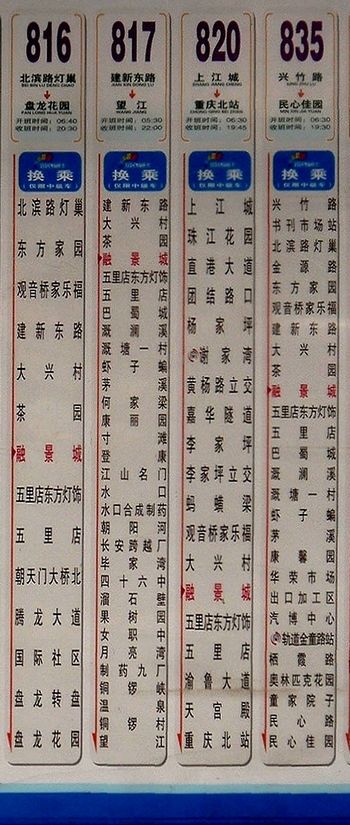 816
北滨路灯巢
BEI BIN LU DENG CHAO
盘龙花园
PAN LONG HUA YUAN
开班时间：06:40
收班时间：20:30
换乘
（仅限中级车）
北滨路灯巢
东方家园
观音桥家乐福
建新东路
大兴村
茶园
融景城
五里店东方灯饰
五里店
朝天门大桥北
腾龙大道
国际社区
盘龙转盘
盘龙花园
817
建新东路
JIAN XIN DONG LU
望江
WANG JIANG
开班时间：05:30
收班时间：22:00
换乘
（仅限中级车）
建新东路
大兴村
茶园
融景城
五里店东方灯饰
五里店
巴蜀城
溉澜溪
溉塘一村
虾子蝙
茅溪
何家梁
康丽园
寸滩
登康
江山名门
水口
水口合成制药
朝阳河
长安跨越厂
毕家湾
四十六中
溜石壁
果树园
女职中
月亮湾
制药九厂
铜锣峡
温泉
铜锣村
望江
820
上江城
SHANG JIANG CHENG
重庆北站
CHONG QING BEI ZHAN
开班时间：06:30
收班时间：19:45
换乘
（仅限中级车）
上江城
珠江花园
直港大道
团结路口
杨家坪
谢家湾
黄杨路立交
嘉华隧道
李家坪
李家坪立交
蚂蟥梁
观音桥家乐福
大兴村
融景城
五里店东方灯饰
五里店
渝鲁大道
天宫殿
重庆北站
835
兴竹路
XING ZHU LU
民心佳园
MIN XIN JIA YUAN
开班时间：06:30
收班时间：19:30
换乘
（仅限中级车）
兴竹路
书刊市场站
北滨路灯巢
金源路
东方家园
观音桥家乐福
建新东路
大兴村
茶园
融景城
五里店东方灯饰
五里店
巴蜀城
溉澜溪
溉塘一村
虾子蝙
茅溪
康馨园
华荣市场
出口加工区
汽博中心
轨道金童路站
栖霞路
奥林匹克花园
童家院子
民心路
民心佳园